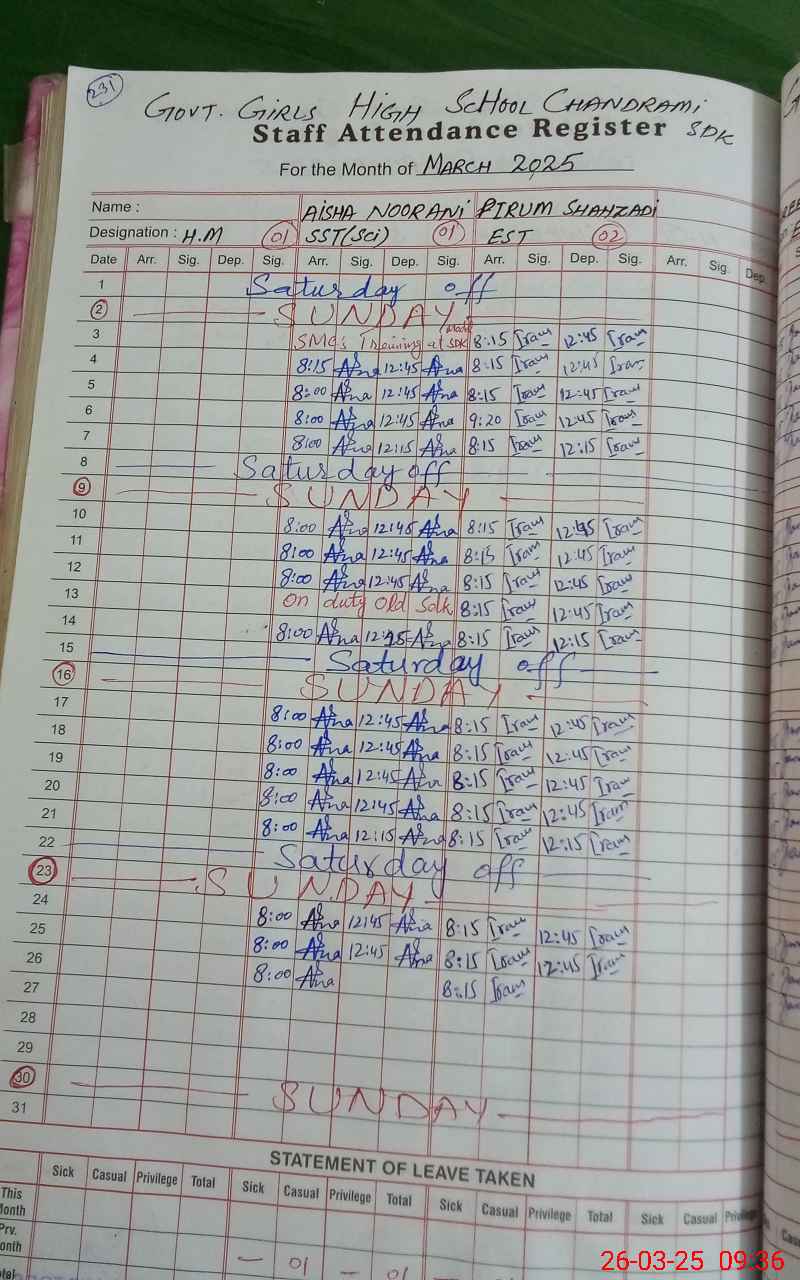 231
GOVT. GIRLS HIGH SCHOOL CHANDRAMI
Staff Attendance Register SDK
For the Month of MARCH 2025
Name : AISHA NOORANI PIRUM SHAHZADI
Designation : H.M 01 SST(Sci) 01 EST 02
Date Arr. Sig. Dep. Sig. Arr. Sig. Dep. Sig. Arr. Sig. Dep. Sig. Arr. Sig. Dep.
1 Saturday off
2 SUNDAY
3 SMCs Training at SDK 8:15 Iram 12:45 Iram
4 8:15 12:45 8:15 Iram 12:45 Iram
5 8:00 12:45 8:15 Iram 12:45 Iram
6 8:00 12:45 9:20 Iram 12:45 Iram
7 8:00 12:15 8:15 Iram 12:15 Iram
8 Saturday off
9 SUNDAY
10 8:00 12:45 8:15 Iram 12:45 Iram
11 8:00 12:45 8:15 Iram 12:45 Iram
12 8:00 12:45 8:15 Iram 12:45 Iram
13 On duty Old Sdk 8:15 Iram 12:45 Iram
14 8:00 12:45 8:15 Iram 12:15 Iram
15 Saturday off
16 SUNDAY
17 8:00 12:45 8:15 Iram 12:45 Iram
18 8:00 12:45 8:15 Iram 12:45 Iram
19 8:00 12:45 8:15 Iram 12:45 Iram
20 8:00 12:45 8:15 Iram 12:45 Iram
21 8:00 12:15 8:15 Iram 12:15 Iram
22 Saturday off
23 SUNDAY
24 8:00 12:45 8:15 Iram 12:45 Iram
25 8:00 12:45 8:15 Iram 12:45 Iram
26 8:00 8:15 Iram
27
28
29
30 SUNDAY
31
STATEMENT OF LEAVE TAKEN
Sick Casual Privilege Total Sick Casual Privilege Total Sick Casual Privilege Total Sick Casual
This Month
Prv. — 01 — 01
26-03-25 09:36